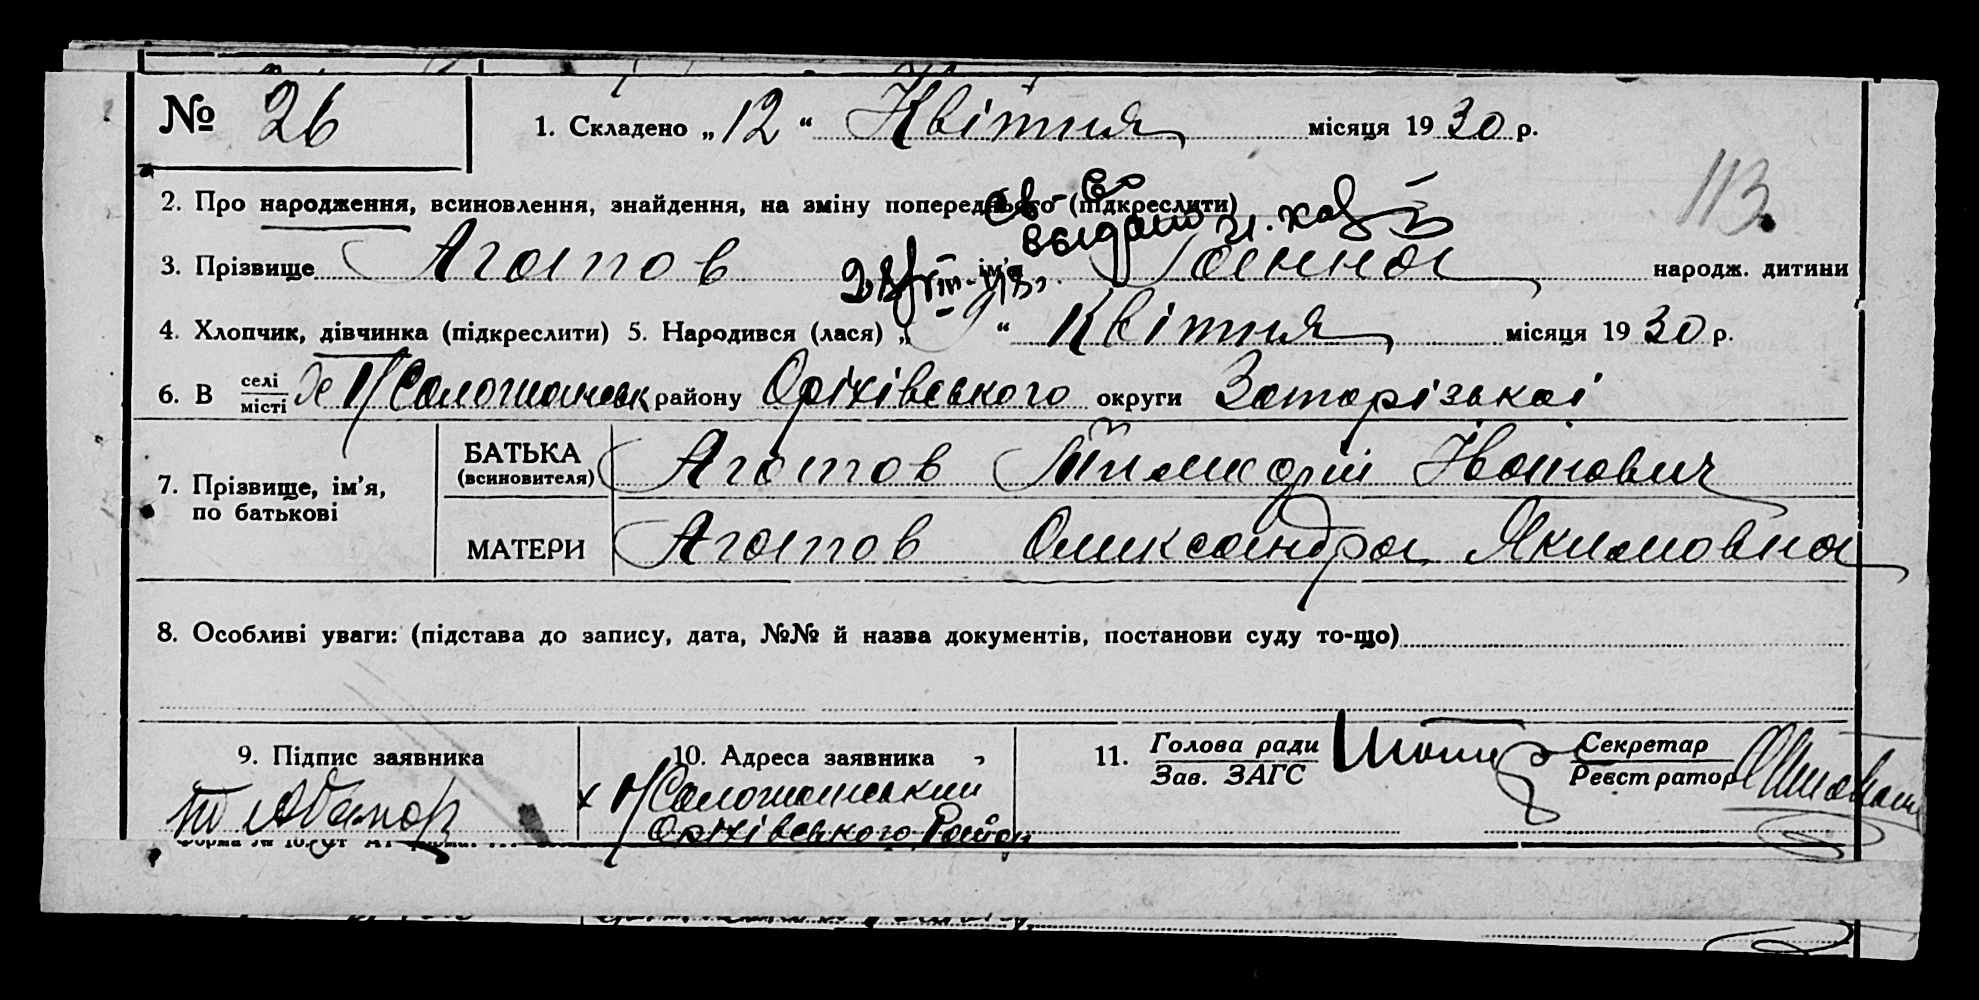 № 26
1. Складено „12“ Квітня місяця 1930 р.
113.
2. Про народження, всиновлення, знайдення, на зміну попереднього (підкреслити)
св-во
выдано
3. Прізвище Агапов ім'я Ганна народж. дитини
4. Хлопчик, дівчинка (підкреслити) 5. Народився (лася) „9“ Квітня місяця 1930 р.
6. В селі місті району Оріхівського округи Запорізької
7. Прізвище, ім'я, по батькові
БАТЬКА (всиновителя) Агапов Тимофій Іванович
МАТЕРИ Агапов Олександра Якимовна
8. Особливі уваги: (підстава до запису, дата, №№ й назва документів, постанови суду то-що)
9. Підпис заявника
10. Адреса заявника
Оріхівського Район
11. Голова ради Зав. ЗАГС
Секретар Реєстратор